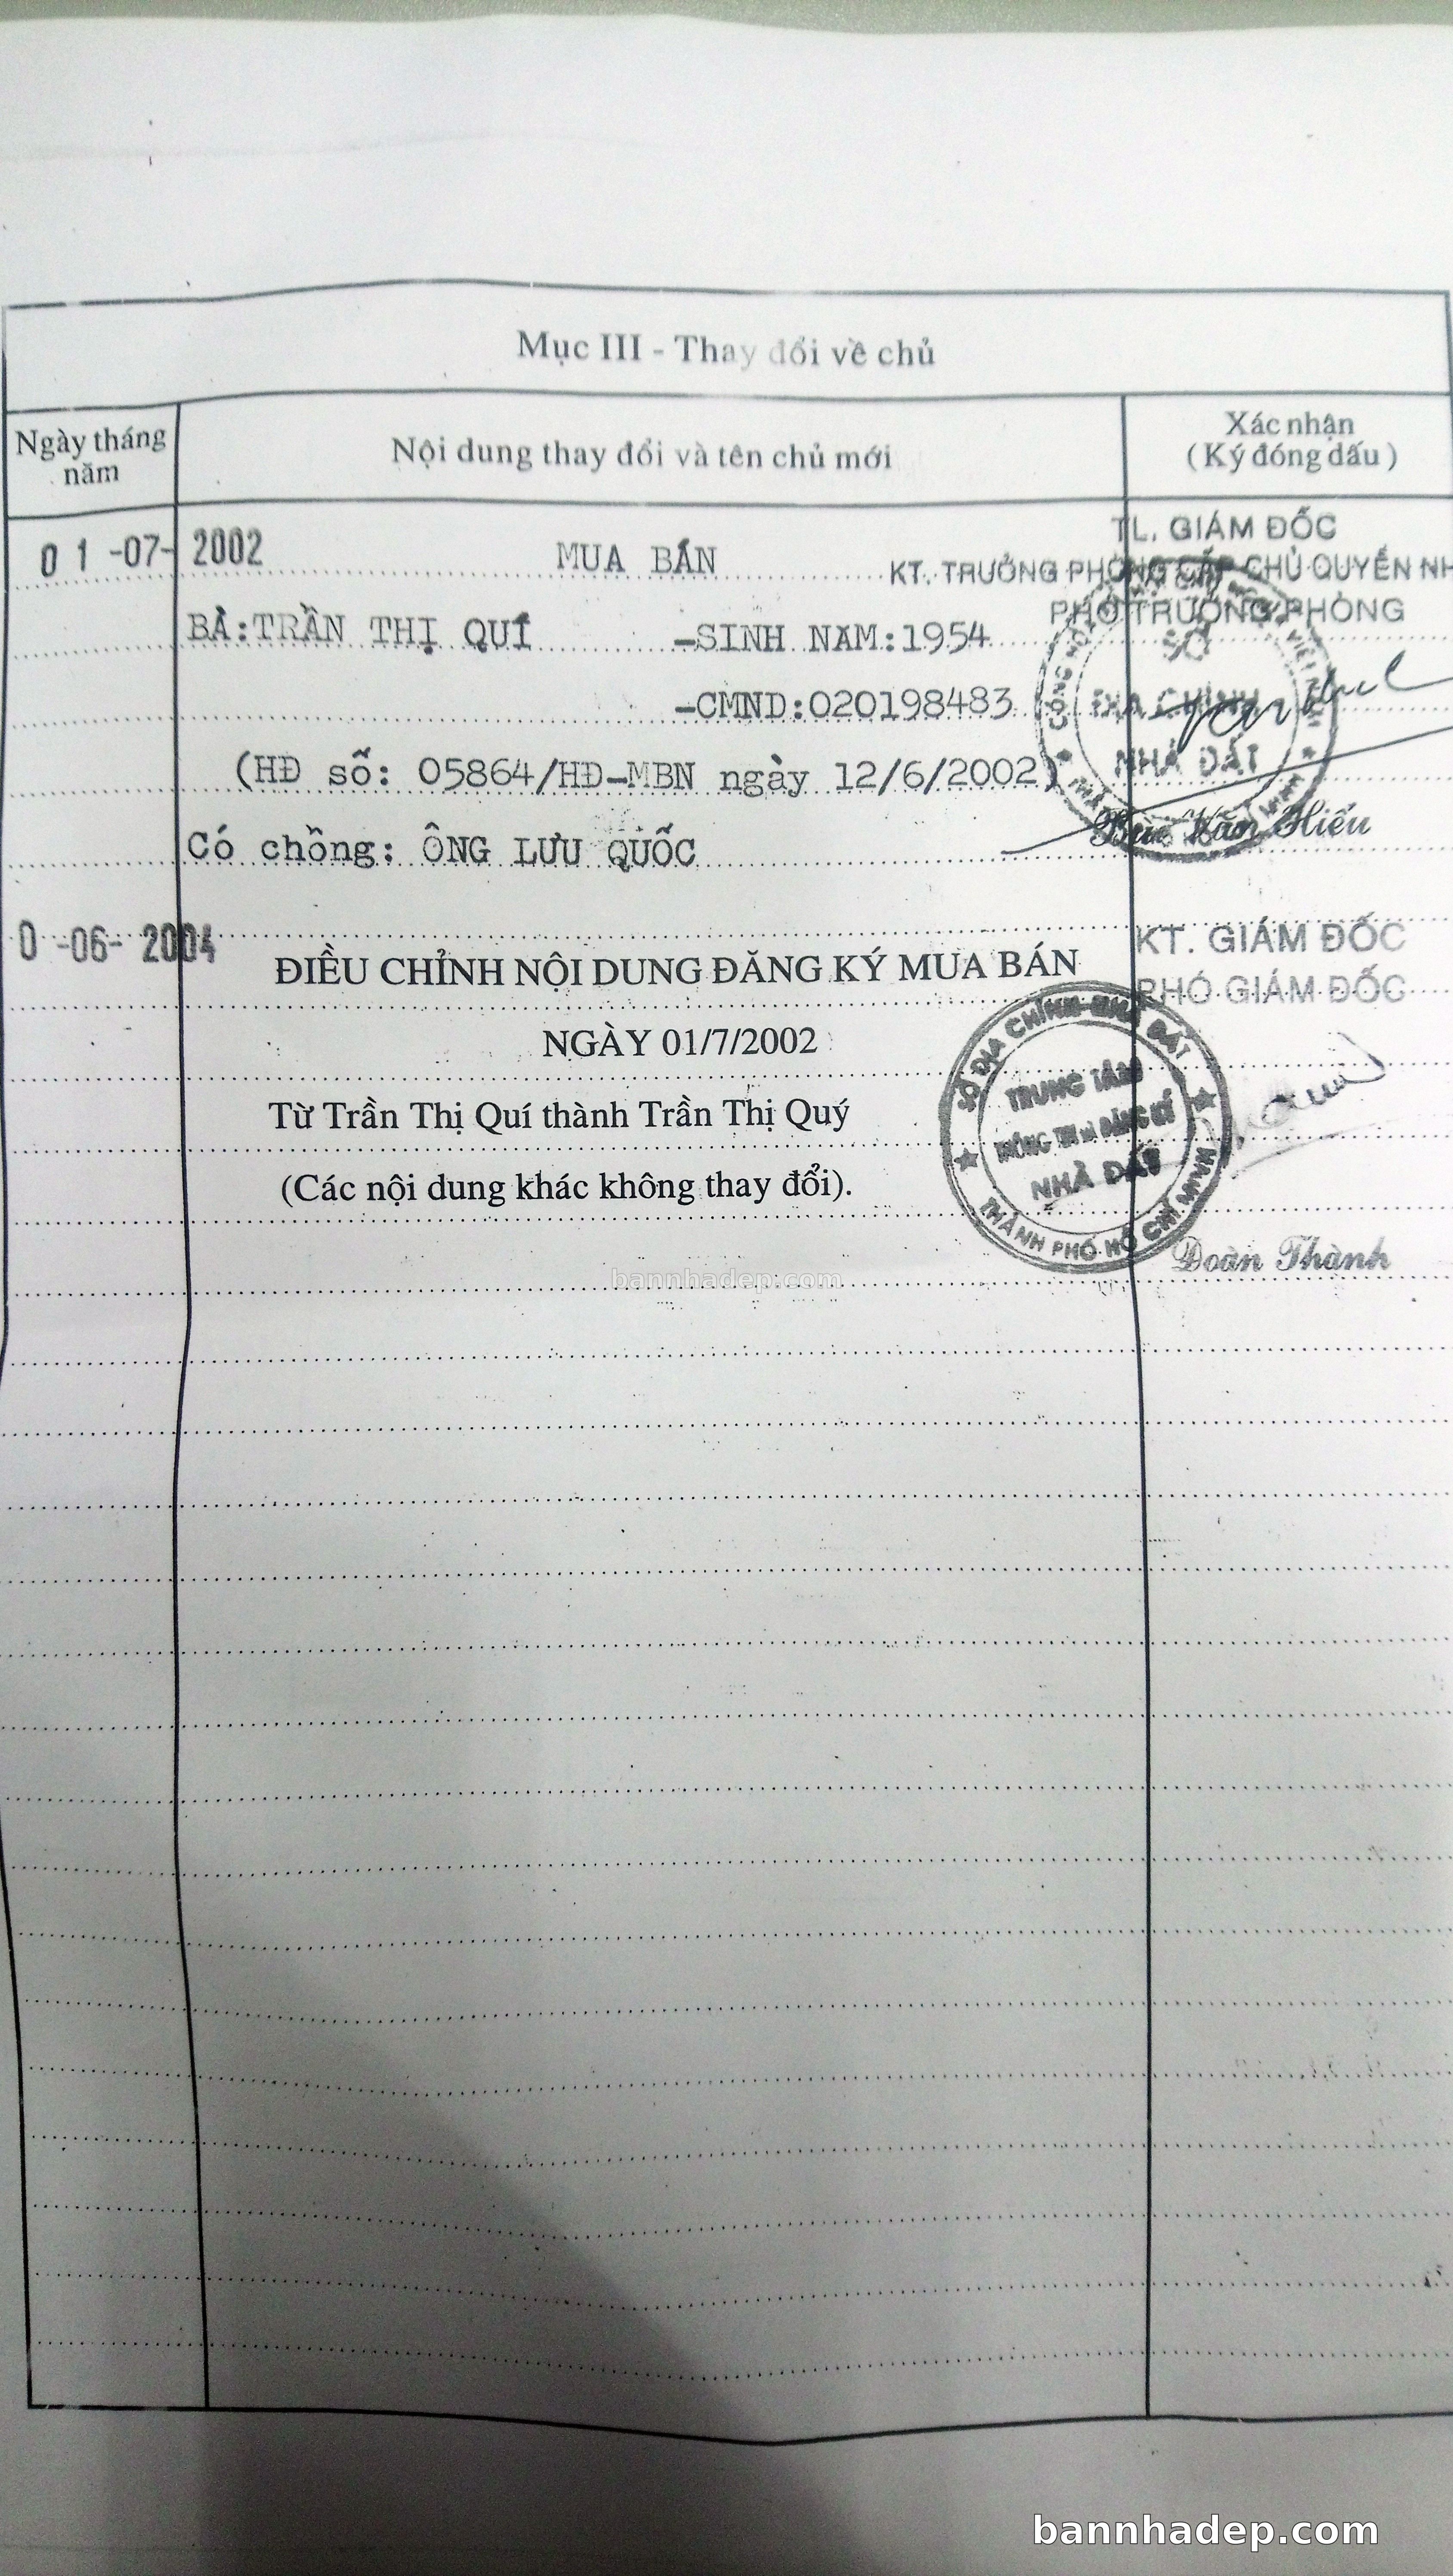 Mục III - Thay đổi về chủ
Ngày tháng năm
Nội dung thay đổi và tên chủ mới
Xác nhận
( Ký đóng dấu )
01-07-2002
MUA BÁN
TL. GIÁM ĐỐC
KT. TRƯỞNG PHÒNG CẤP CHỦ QUYỀN NH
PHÓ TRƯỞNG PHÒNG
BÀ:TRẦN THỊ QUÍ -SINH NĂM:1954
-CMND:020198483
SỞ
ĐỊA CHÍNH
NHÀ ĐẤT
(HĐ số: 05864/HĐ-MBN ngày 12/6/2002)
Văn Hiếu
Có chồng: ÔNG LƯU QUỐC
0 -06- 2004
ĐIỀU CHỈNH NỘI DUNG ĐĂNG KÝ MUA BÁN
KT. GIÁM ĐỐC
PHÓ GIÁM ĐỐC
NGÀY 01/7/2002
Từ Trần Thị Quí thành Trần Thị Quý
(Các nội dung khác không thay đổi).
SỞ ĐỊA CHÍNH NHÀ ĐẤT
TRUNG TÂM
THÔNG TIN và ĐĂNG KÝ
NHÀ ĐẤT
THÀNH PHỐ HỒ CHÍ MINH
Đoàn Thành
bannhadep.com
bannhadep.com